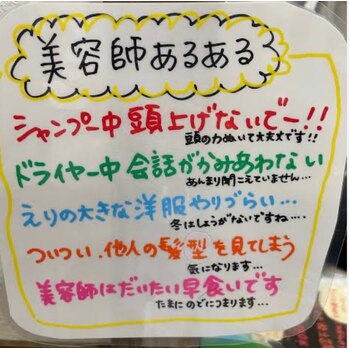 美容師あるある
シャンプー中 頭上げないでー!!
頭の力ぬいて大丈夫です!!
ドライヤー中 会話がかみあわない
あんまり聞こえていません…
えりの大きな洋服やりづらい…
冬はしょうがないですね…
ついつい、他人の髪型を見てしまう
気になります…
美容師はだいたい早食いです
たまにのどにつまります…